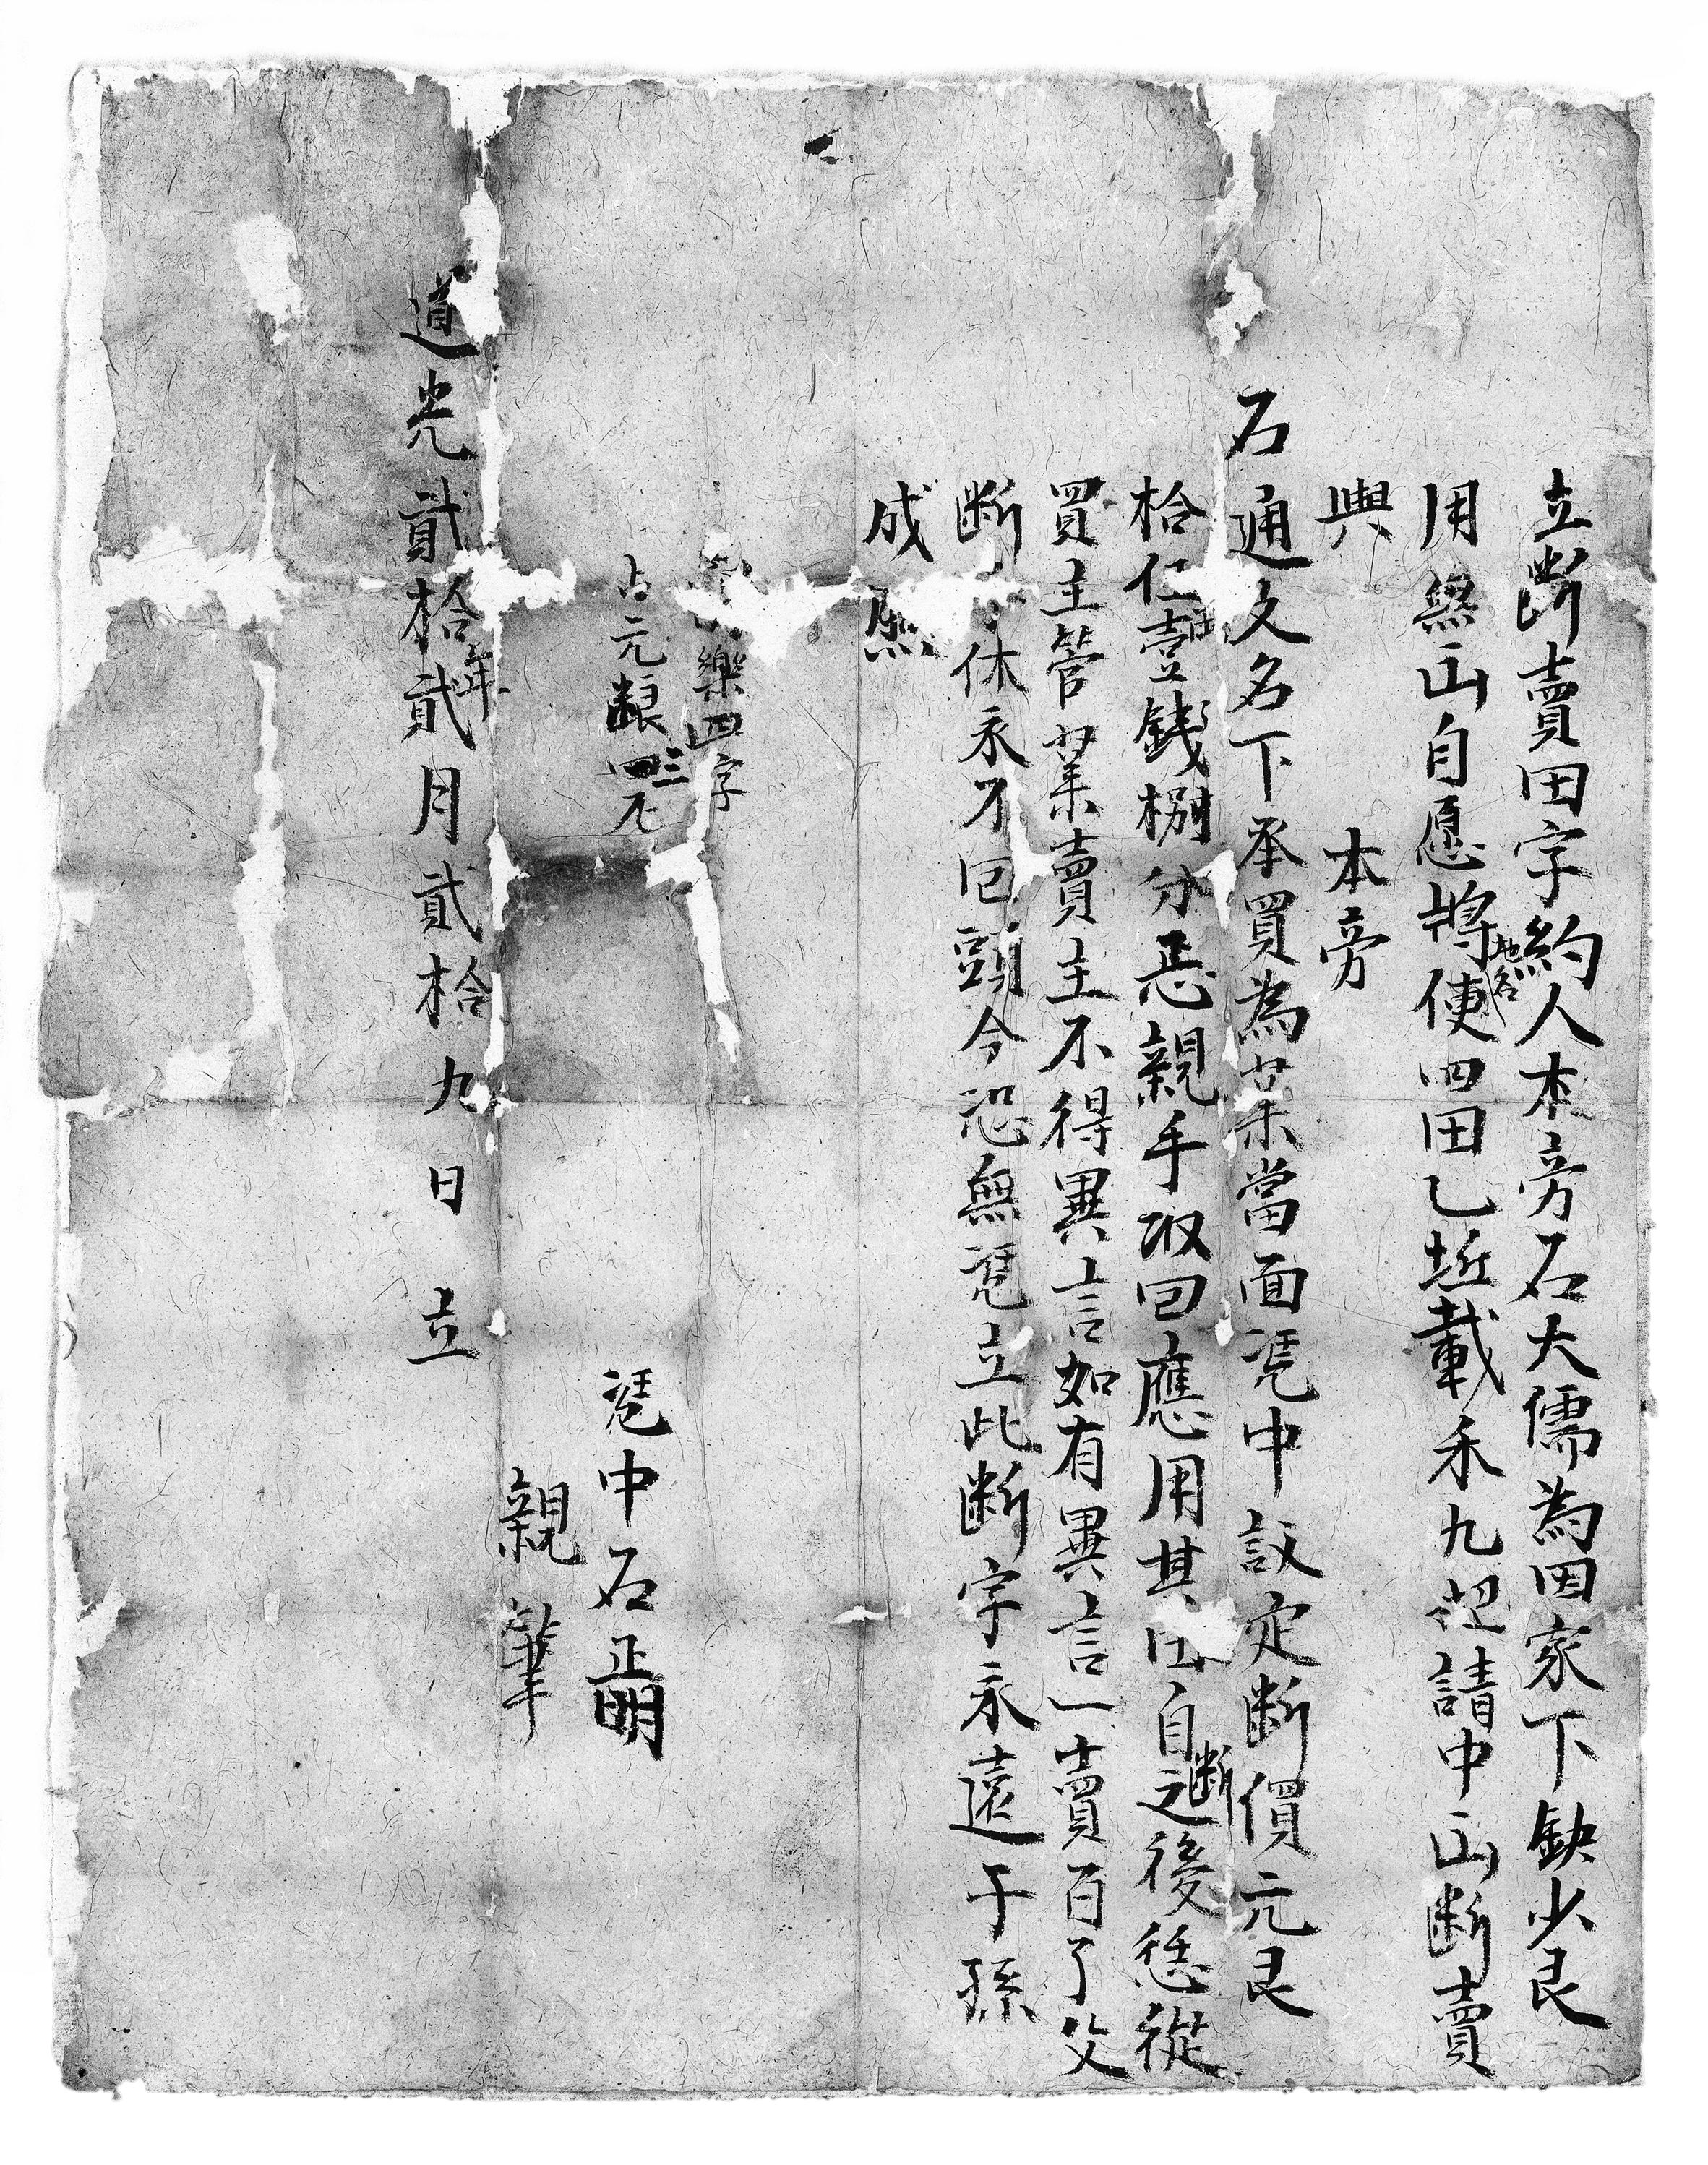 立断賣田字約人本旁石大儒為因家下缺少艮
用無出自愿將地名便四田乙坵載禾九把請中出断賣
與　本旁
石通文名下承買為業當面凴中議定断價元艮
拾仁壹錢捌分忥親手収回應用其田自断之後恁從
買主管業賣主不得異言如有異言一賣百了父
断休永不囘頭今恐無凴立此断字永遠子孫
成照
樂四字
占元粮三
凴中石正明
親筆
道光貳拾貳年貳月貳拾九日立